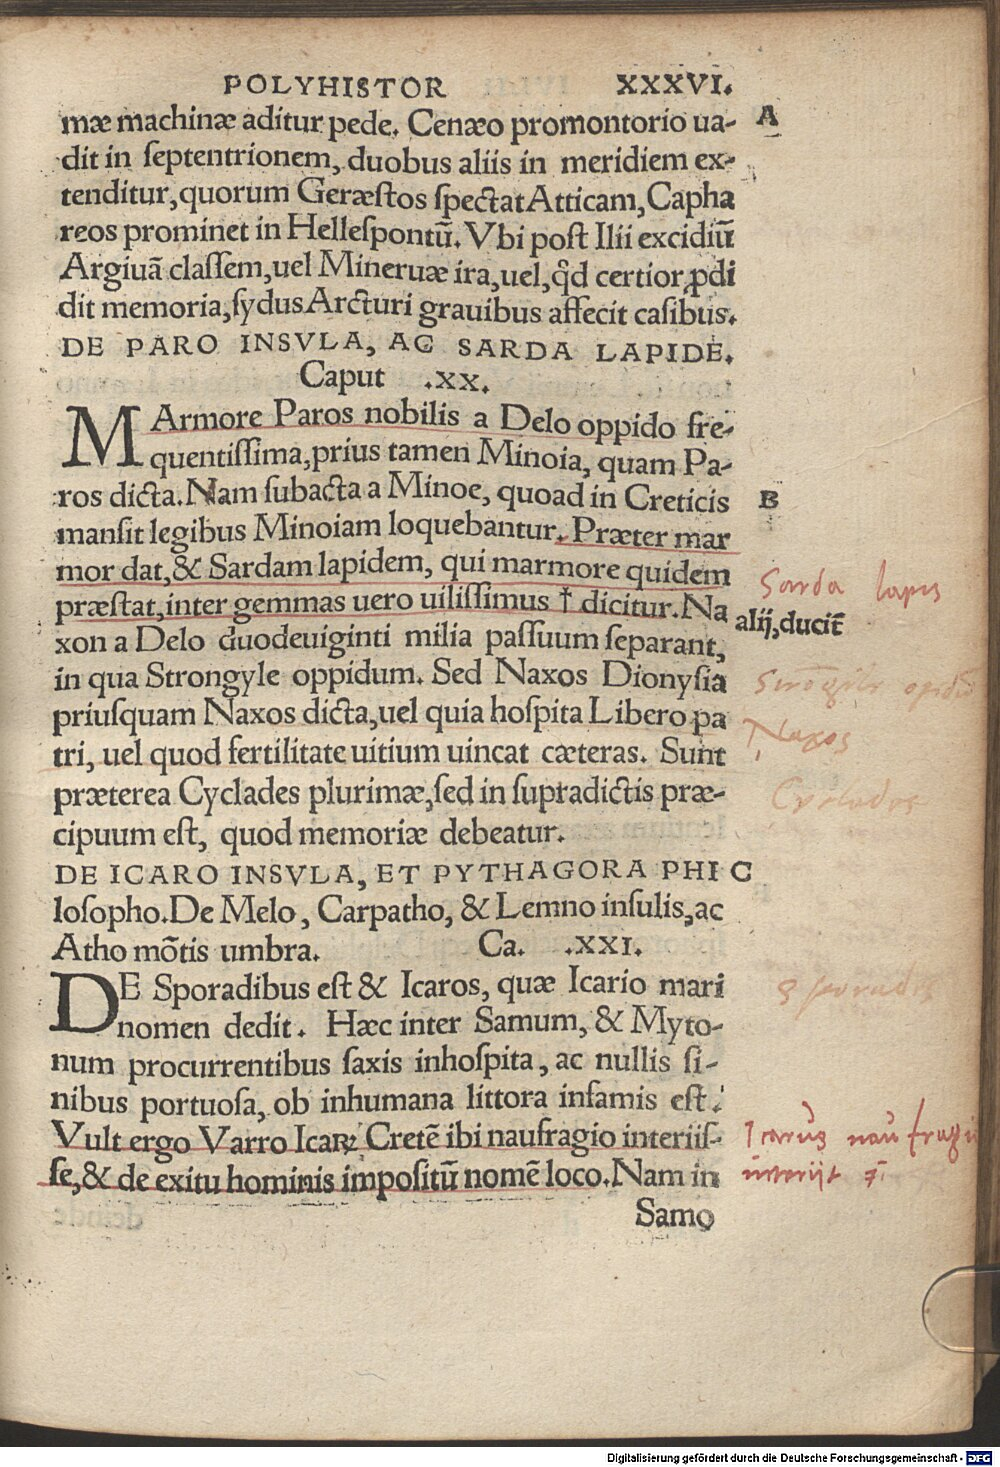 POLYHISTOR XXXVI.
mæ machinæ aditur pede. Cenæo promontorio ua- A
dit in ſeptentrionem, duobus aliis in meridiem ex-
tenditur, quorum Geræſtos ſpectat Atticam, Capha
reos prominet in Helleſpontũ. Vbi poſt Ilii excidiũ
Argiuã claſſem, uel Mineruæ ira, uel, qd̃ certior ꝓdi
dit memoria, ſydus Arcturi grauibus affecit caſibus.
DE PARO INSVLA, AC SARDA LAPIDE.
Caput .XX.
MArmore Paros nobilis a Delo oppido fre-
quentiſſima, prius tamen Minoia, quam Pa-
ros dicta. Nam ſubacta a Minoe, quoad in Creticis B
manſit legibus Minoiam loquebantur. Præter mar
mor dat, & Sardam lapidem, qui marmore quidem
Sarda lapis
præſtat, inter gemmas uero uiliſſimus † dicitur. Na
alij, ducit̃
xon a Delo duodeuiginti milia paſſuum ſeparant,
in qua Strongyle oppidum. Sed Naxos Dionyſia
priuſquam Naxos dicta, uel quia hoſpita Libero pa
Naxos
tri, uel quod fertilitate uitium uincat cæteras. Sunt
præterea Cyclades plurimæ, ſed in ſupradictis præ-
Cyclades
cipuum eſt, quod memoriæ debeatur.
DE ICARO INSVLA, ET PYTHAGORA PHI C
loſopho. De Melo, Carpatho, & Lemno inſulis, ac
Atho mõtis umbra. Ca. .XXI.
DE Sporadibus eſt & Icaros, quæ Icario mari
Sporades
nomen dedit. Hæc inter Samum, & Myto-
num procurrentibus ſaxis inhoſpita, ac nullis ſi-
nibus portuoſa, ob inhumana littora infamis eſt.
Vult ergo Varro Icaꝝ Cretẽ ibi naufragio interiiſ-
Icarus nau fragi
ſe, & de exitu hominis impoſitũ nomẽ loco. Nam in
interijt
Samo
Digitalisierung gefördert durch die Deutsche Forschungsgemeinschaft - DFG